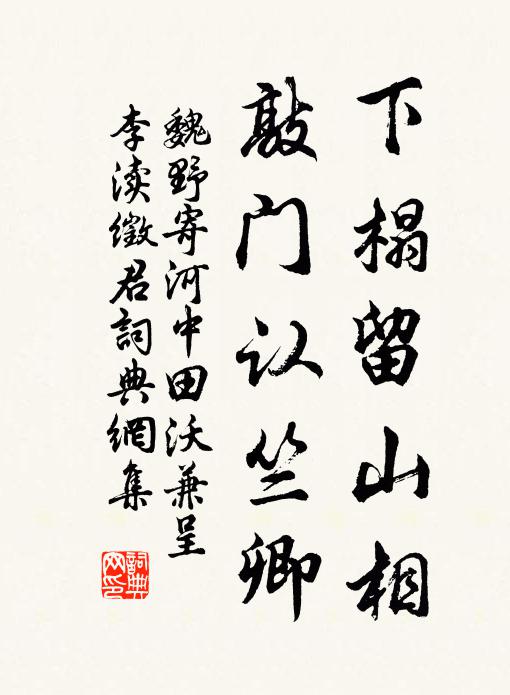 下榻留山相
敲门认竺卿
魏野寄河中田沃兼呈
李渎徵君詞典網集
詞典网印